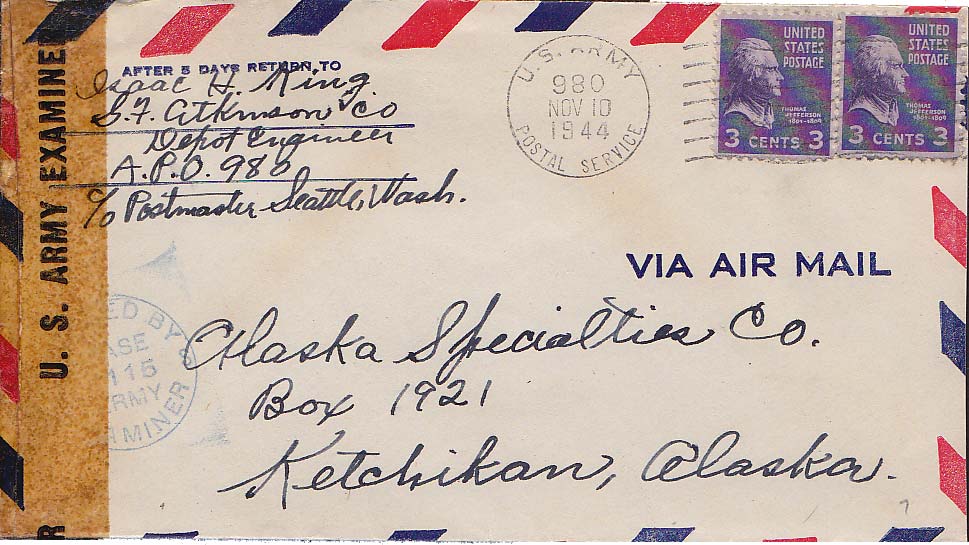 U. S. ARMY EXAMINE
R
AFTER 5 DAYS RETURN TO
Isaac H. King.
S.F. Atkinson Co
Depot Engineer
A.P.O. 980
c/o Postmaster Seattle, Wash.
U.S. ARMY
980
NOV 10
1944
POSTAL SERVICE
UNITED
STATES
POSTAGE
THOMAS
JEFFERSON
1801-1809
3 CENTS 3
UNITED
STATES
POSTAGE
THOMAS
JEFFERSON
1801-1809
3 CENTS 3
VIA AIR MAIL
ED BY
ASE
115
RMY
MINER
Alaska Specialties Co.
Box 1921
Ketchikan, Alaska.